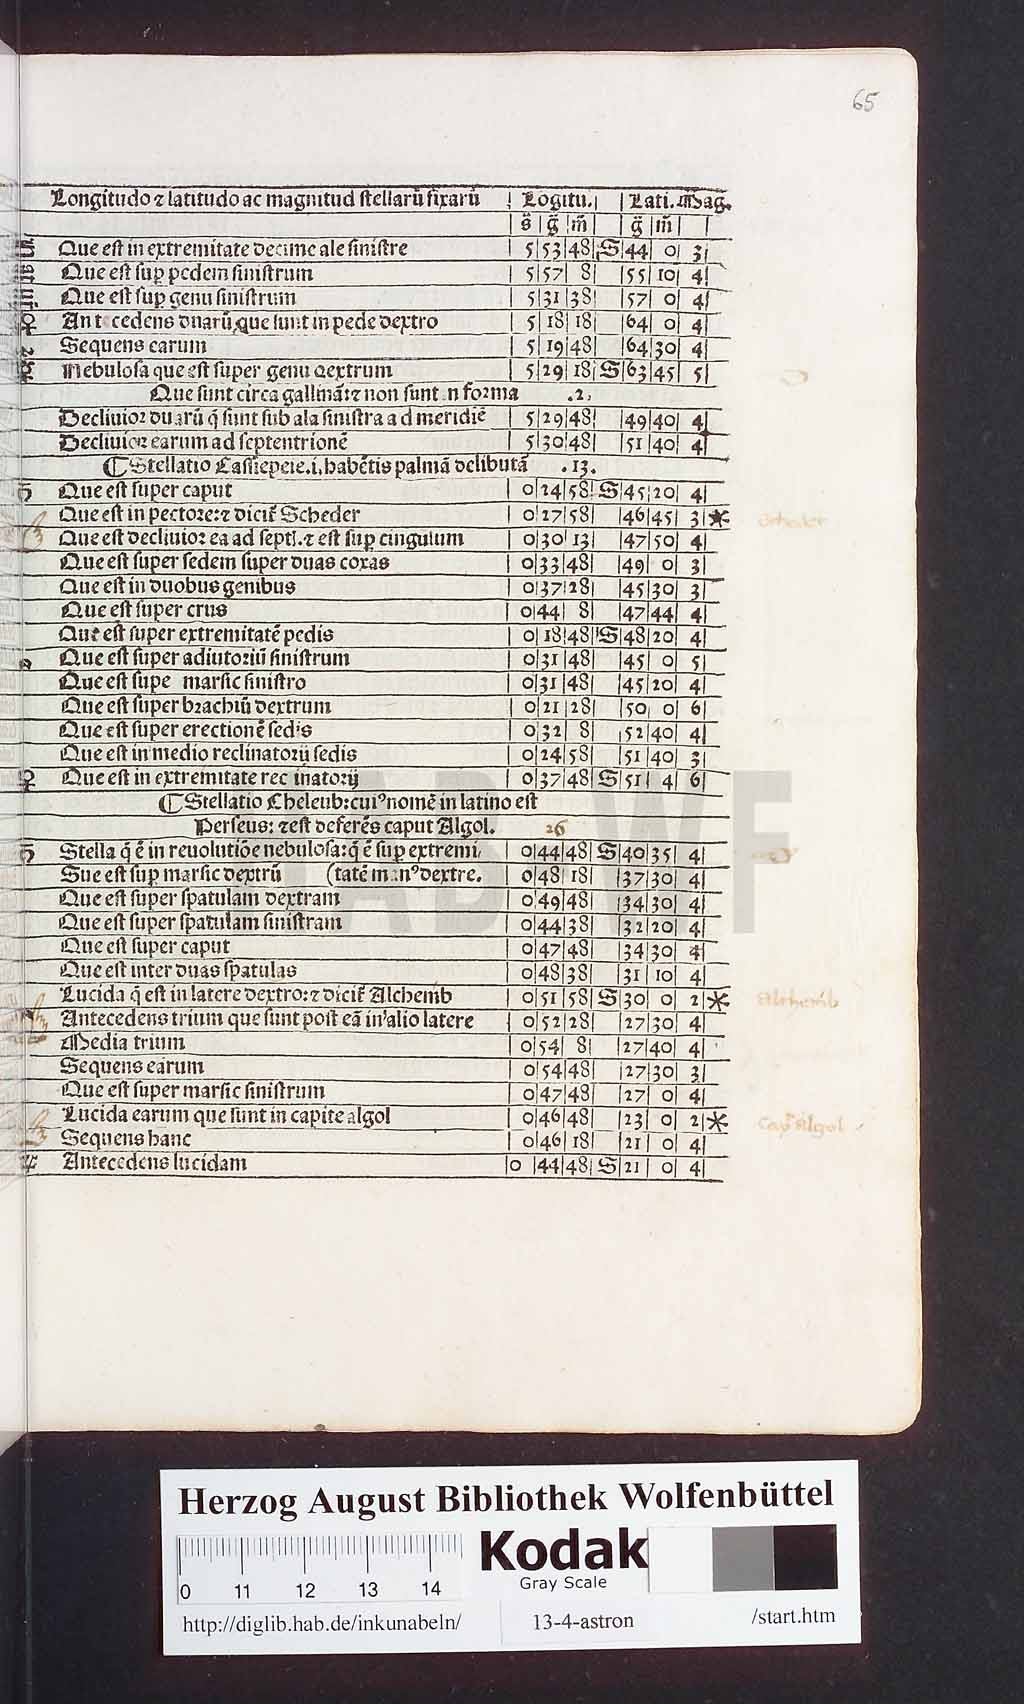 65
Longitudo ⁊ latitudo ac magnitud stellarū fixarū | Lōgitu. | Lati. Mag.
s̄ | ḡ | m̄ | ḡ | m̄
Que est in extremitate decime ale sinistre 5 53 48 S 44 0 3
Que est sup pedem sinistrum 5 57 8 55 10 4
Que est sup genu sinistrum 5 31 38 57 0 4
Antecedens duarū que sunt in pede dextro 5 18 18 64 0 4
Sequens earum 5 19 48 64 30 4
Nebulosa que est super genu dextrum 5 29 18 S 63 45 5
Que sunt circa gallinā:⁊ non sunt in forma .2.
Decliuior duarū q̄ sunt sub ala sinistra ad meridiē 5 29 48 49 40 4
Decliuior earum ad septentrionē 5 30 48 51 40 4
¶ Stellatio Cassiepeie.i.habētis palmā delibutā .13.
Que est super caput 0 24 58 S 45 20 4
Que est in pectore:⁊ dicit̄ Scheder 0 27 58 46 45 3 * Scheder
Que est decliuior ea ad septē.⁊ est sup cingulum 0 30 13 47 50 4
Que est super sedem super duas coxas 0 33 48 49 0 3
Que est in duobus genibus 0 37 28 45 30 3
Que est super crus 0 44 8 47 44 4
Que est super extremitatē pedis 0 18 48 S 48 20 4
Que est super adiutoriū sinistrum 0 31 48 45 0 5
Que est supe marfic sinistro 0 31 48 45 20 4
Que est super brachiū dextrum 0 21 28 50 0 6
Que est super erectionē sedis 0 32 8 52 40 4
Que est in medio reclinatorij sedis 0 24 58 51 40 3
Que est in extremitate rec inatorij 0 37 48 S 51 4 6
¶ Stellatio Cheleub:cuiꝰ nomē in latino est
Perseus: ⁊ est deferēs caput Algol. 26
Stella q̄ ē in reuolutiōe nebulosa:q̄ ē sup extremi/ 0 44 48 S 40 35 4
Sue est sup marfic dextrū (tatē manꝰ dextre. 0 48 18 37 30 4
Que est super spatulam dextram 0 49 48 34 30 4
Que est super spatulam sinistram 0 44 38 32 20 4
Que est super caput 0 47 48 34 30 4
Que est inter duas spatulas 0 48 38 31 10 4
Lucida q̄ est in latere dextro:⁊ dicit̄ Alchemb 0 51 58 S 30 0 2 * Alchemb
Antecedens trium que sunt post eā in alio latere 0 52 28 27 30 4
Media trium 0 54 8 27 40 4
Sequens earum 0 54 48 27 30 3
Que est super marfic sinistrum 0 47 48 27 0 4
Lucida earum que sunt in capite algol 0 46 48 23 0 2 * Cap Algol
Sequens hanc 0 46 18 21 0 4
Antecedens lucidam 0 44 48 S 21 0 4
HAB WF
Herzog August Bibliothek Wolfenbüttel
Kodak
Gray Scale
0 11 12 13 14
http://diglib.hab.de/inkunabeln/ 13-4-astron /start.htm